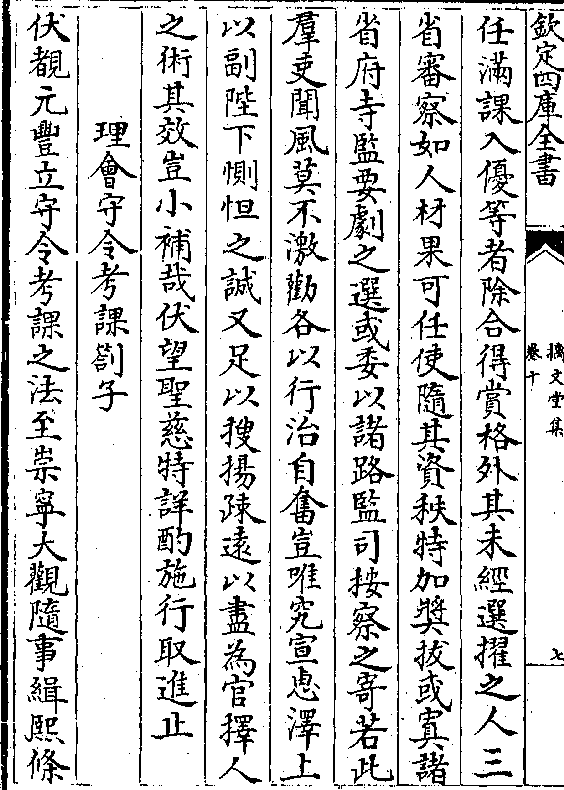 欽定四庫全書
摛文堂集
卷十
七
任滿課入優等者除合得賞格外其未經選擢之人三
省審察如人材果可任使隨其資秩特加奬拔或寘諸
省府寺監要劇之選或委以諸路監司按察之寄若此
羣吏聞風莫不激勸各以行治自奮豈唯究宣惠澤上
以副陛下惻怛之誠又足以搜揚疎遠以盡為官擇人
之術其效豈小補哉伏望聖慈特詳酌施行取進止
理會守令考課劄子
伏覩元豐立守令考課之法至崇寧大觀隨事緝熙條